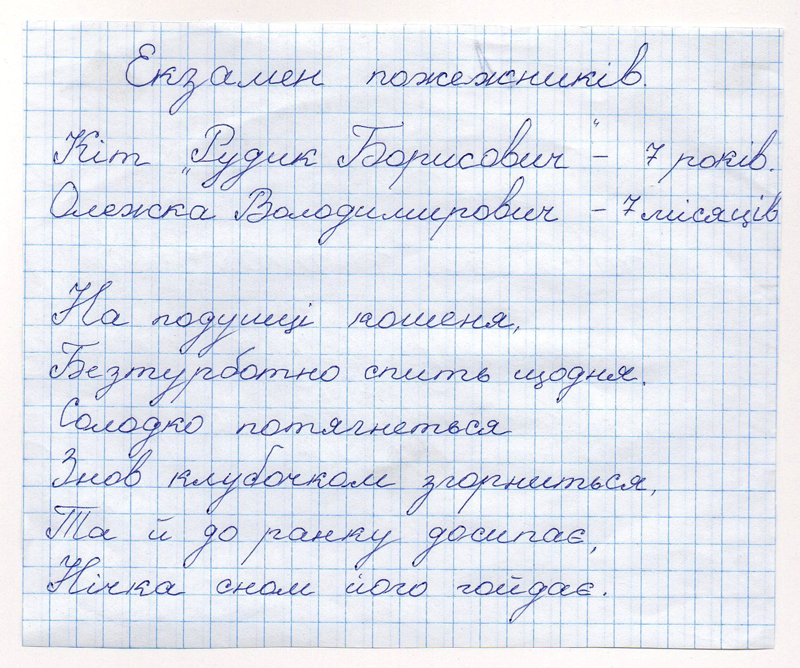 Екзамен пожежників.
Кіт „Рудик Борисович" – 7 років.
Олежка Володимирович – 7 місяців
На подушці кошеня,
Безтурботно спить щодня.
Солодко потягнеться
Знов клубочком згорниться,
Та й до ранку досипає,
Нічка сном його гойдає.